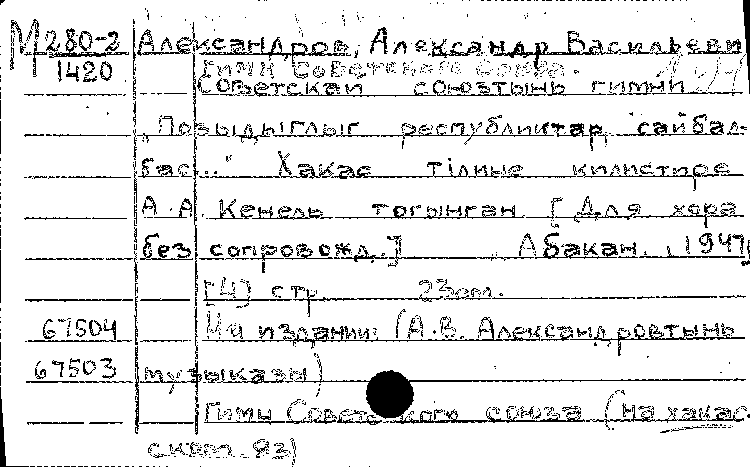 М 280-2 Александров, Александр Васильеви
1420 Гимн Советского Союза.
Советскай союзтынь гимни
„Позыдыглыг республиктар сайбал-
бас..." Хакас тiлiне килистире
А.А. Кенель тогынган. [Для хора
без сопровожд.] Абакан, 1947
[4] стр. 23 см.
67504 На издании: (А.В. Александровтынь
67503 музыказы)
Гимн Советского союза (на хакас-
ском яз)